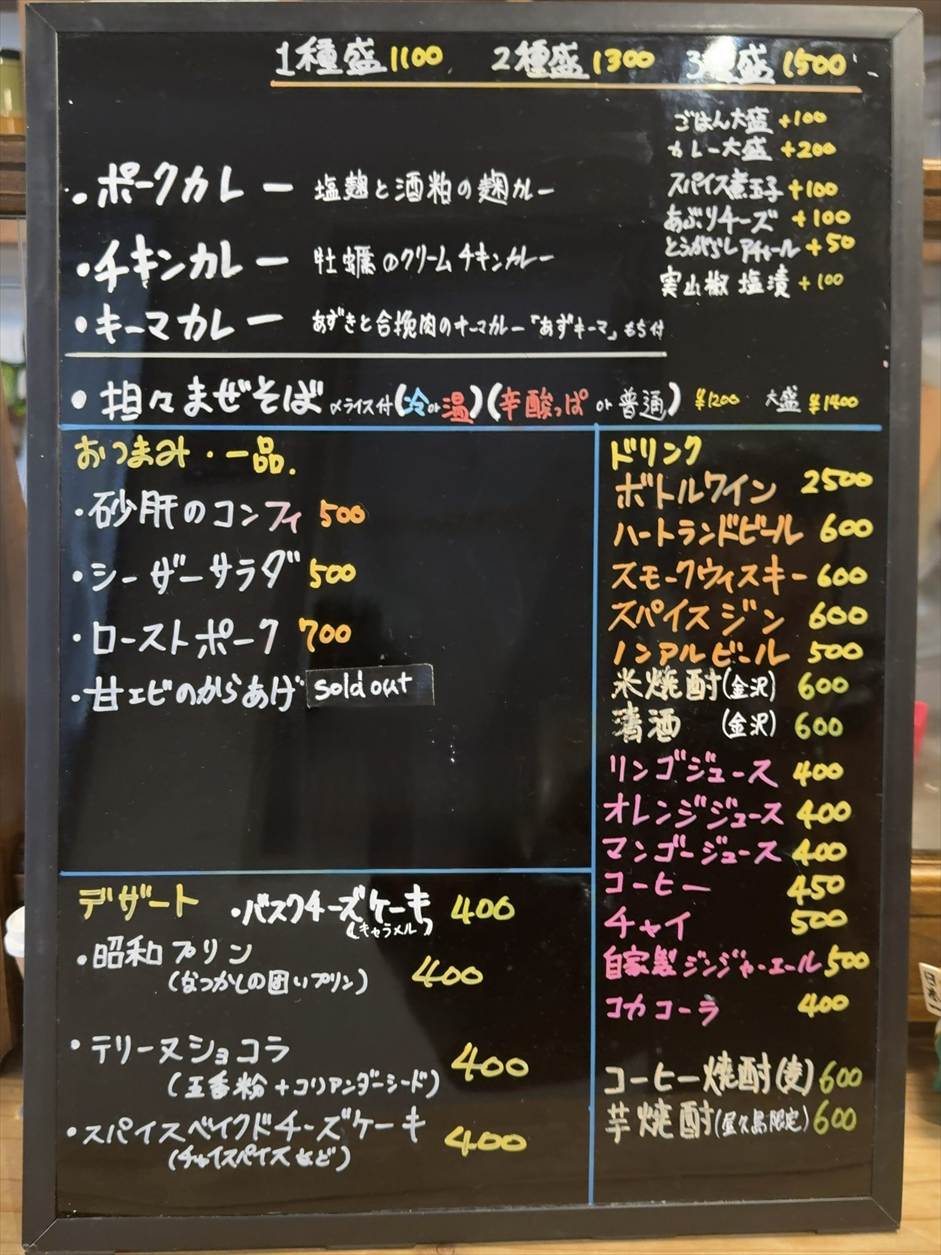 1種盛1100 2種盛1300 3種盛1500
ごはん大盛+100
カレー大盛+200
スパイス煮玉子+100
あぶりチーズ+100
とうがらしアチャール+50
実山椒塩漬+100
・ポークカレー 塩麹と酒粕の麹カレー
・チキンカレー 牡蠣のクリームチキンカレー
・キーマカレー あずきと合挽肉のキーマカレー「あずキーマ」もち付
・担々まぜそば 〆ライス付(冷or温)(辛酸っぱor普通) ¥1200 大盛¥1400
おつまみ・一品.
・砂肝のコンフィ 500
・シーザーサラダ 500
・ローストポーク 700
・甘エビのからあげ sold out
ドリンク
ボトルワイン 2500
ハートランドビール 600
スモークウィスキー 600
スパイスジン 600
ノンアルビール 500
米焼酎(金沢) 600
清酒 (金沢) 600
リンゴジュース 400
オレンジジュース 400
マンゴージュース 400
コーヒー 450
チャイ 500
自家製ジンジャーエール 500
コカコーラ 400
コーヒー焼酎(麦) 600
芋焼酎(屋久島限定) 600
デザート ・バスクチーズケーキ 400
(キャラメル)
・昭和プリン
(なつかしの固いプリン) 400
・テリーヌショコラ 400
(五香粉+コリアンダーシード)
・スパイスベイクドチーズケーキ 400
(チャイスパイスなど)